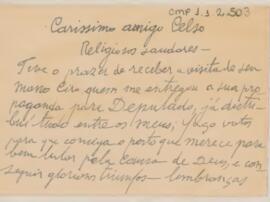 CMP 1.1.2.503
Caríssimo amigo Celso
Religiosas saudações -
Tive o prazer de receber a visita de seu
mano Ciro quem me entregou a sua pro
paganda para Deputado, já distri
bui tudo entre os meus, faço votos
para que consiga o posto que merece para
bem lutar pela Causa de Deus, e con
seguir gloriosos triunfos - lembranças